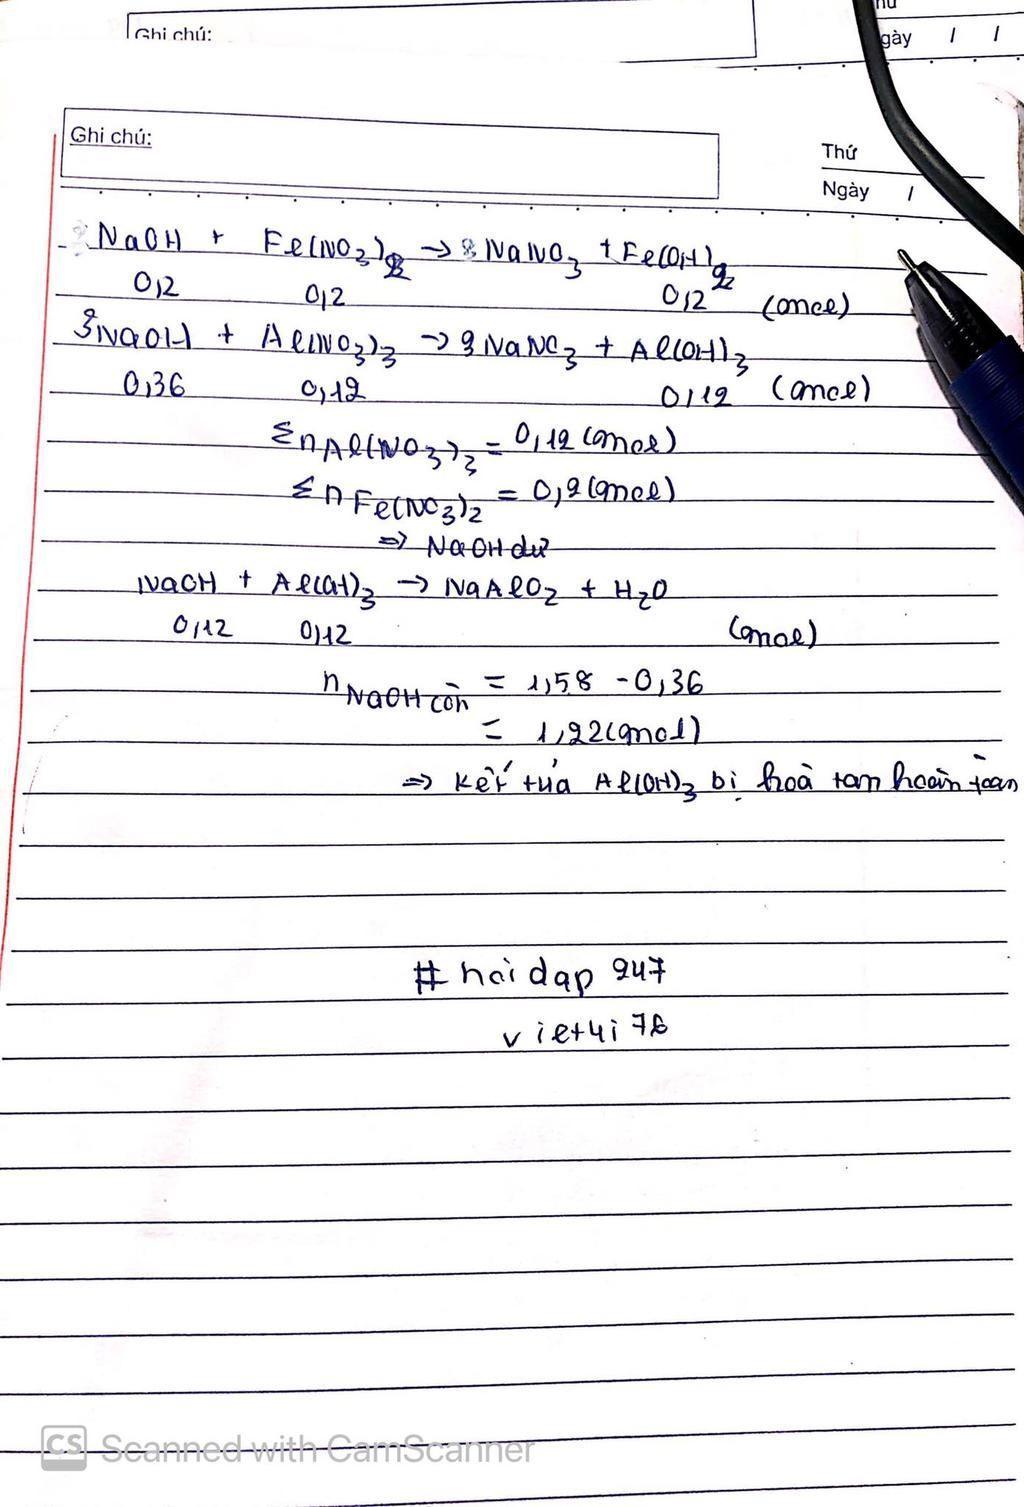 Ghi chú:
gày / /
Ghi chú:
Thứ
Ngày /
NaOH + Fe(NO3)2 → NaNO3 + Fe(OH)2
0,2 0,2 0,2 (mol)
3NaOH + Al(NO3)3 → 3NaNO3 + Al(OH)3
0,36 0,12 0,12 (mol)
ΣnAl(NO3)3 = 0,12 (mol)
ΣnFe(NO3)2 = 0,2 (mol)
=> NaOH dư
NaOH + Al(OH)3 → NaAlO2 + H2O
0,12 0,12 (mol)
nNaOH còn = 1,58 - 0,36
= 1,22 (mol)
=> Kết tủa Al(OH)3 bị hoà tan hoàn toàn
# hoidap 247
vietti76
CS Scanned with CamScanner